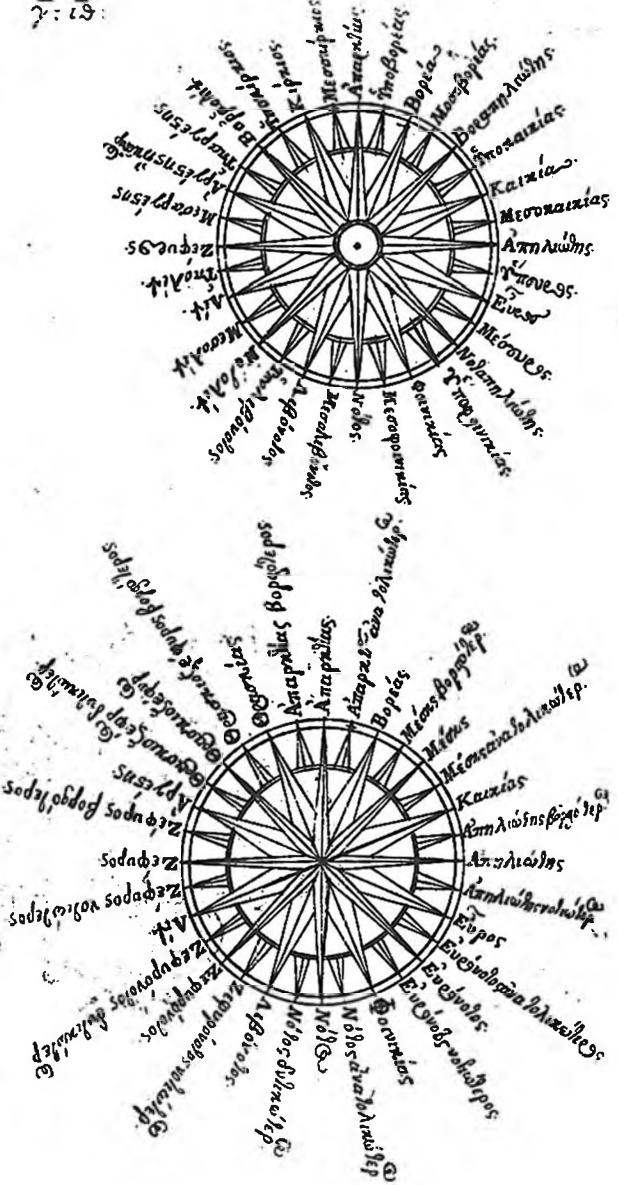 Ἀπαρκτίας
Ὑποβορέας
Βορέας
Μεσοβορέας
Βοραπηλιώτης
Ὑποκαικίας
Καικίας
Μεσοκαικίας
Ἀπηλιώτης
Ὑπόευρος
Εὖρος
Μέσευρος
Νοταπηλιώτης
Ὑποφοινικίας
Φοινικίας
Μεσοφοινικίας
Νότος
Μεσολιβόνοτος
Λιβόνοτος
Ὑπολιβόνοτος
Νοτολίψ
Μεσολίψ
Λίψ
Ὑπολίψ
Ζέφυρος
Μεσαργέστης
Ὑπαργέστης
Βορρολίψ
Κίρκιος
Μεσοκίρκιος
Ἀπαρκτίας βορρότερος
Ἀπαρκτίας
Ἀπαρκτίας ἀνατολικώτερος
Βορέας
Μέσης βορρότερος
Μέσης
Μέσης ἀνατολικώτερος
Καικίας
Ἀπηλιώτης βορρότερος
Ἀπηλιώτης
Ἀπηλιώτης νοτιώτερος
Εὖρος
Εὐρόνοτος ἀνατολικώτερος
Εὐρόνοτος
Εὐρόνοτος νοτιώτερος
Φοινικίας
Νότος ἀνατολικώτερος
Νότος
Νότος δυτικώτερος
Λιβόνοτος
Ζεφυρόνοτος νοτιώτερος
Ζεφυρόνοτος
Ζεφυρόνοτος δυτικώτερος
Λίψ
Ζέφυρος νοτιώτερος
Ζέφυρος
Ζέφυρος βορρότερος
Ἀργέστης
Θρασκίας